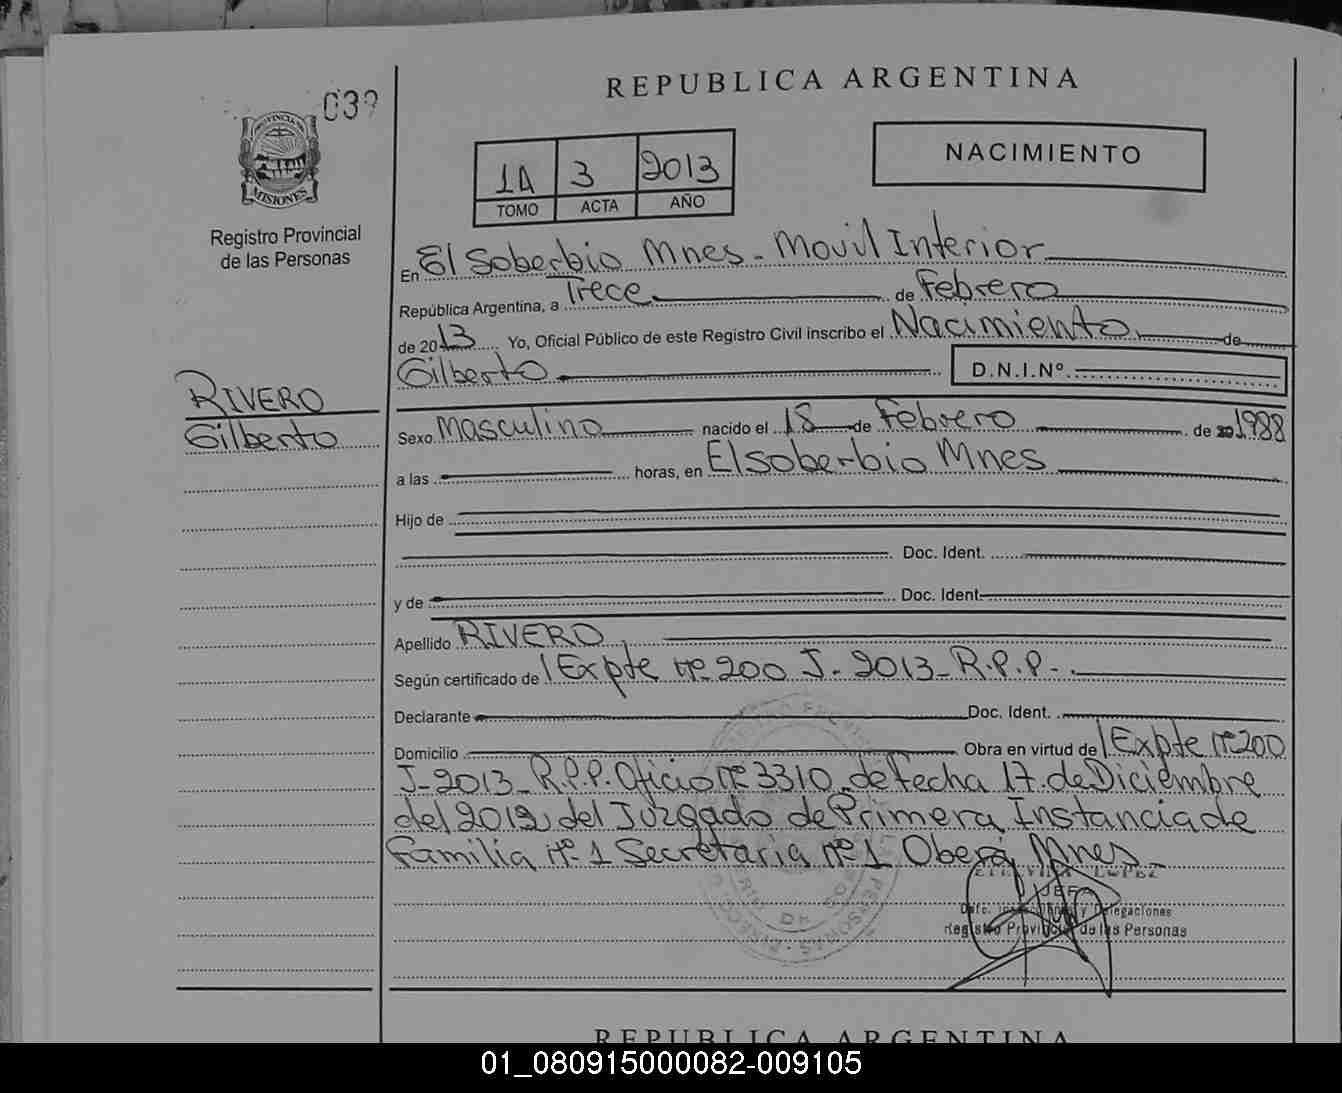 REPUBLICA ARGENTINA
039
PROVINCIA
MISIONES
Registro Provincial
de las Personas
1A 3 2013
TOMO ACTA AÑO
NACIMIENTO
En El Soberbio Mnes - Movil Interior
República Argentina, a Trece de Febrero
de 2013 Yo, Oficial Público de este Registro Civil inscribo el Nacimiento de
Gilberto D.N.I.Nº
RIVERO
Gilberto
Sexo Masculino nacido el 18 de Febrero de 1988
a las horas, en El soberbio Mnes
Hijo de
Doc. Ident.
y de Doc. Ident.
Apellido RIVERO
Según certificado de Expte nº 200 J - 2013 - R.P.P.
Declarante Doc. Ident.
Domicilio Obra en virtud de Expte nº 200
J - 2013 - R.P.P. Oficio nº 3310 de fecha 17 de Diciembre
del 2012 del Juzgado de Primera Instancia de
Familia nº 1 Secretaria nº 1 Oberá Mnes -
JEFA
y Delegaciones
Registro Provincial de las Personas
REPUBLICA ARGENTINA
01_080915000082-009105